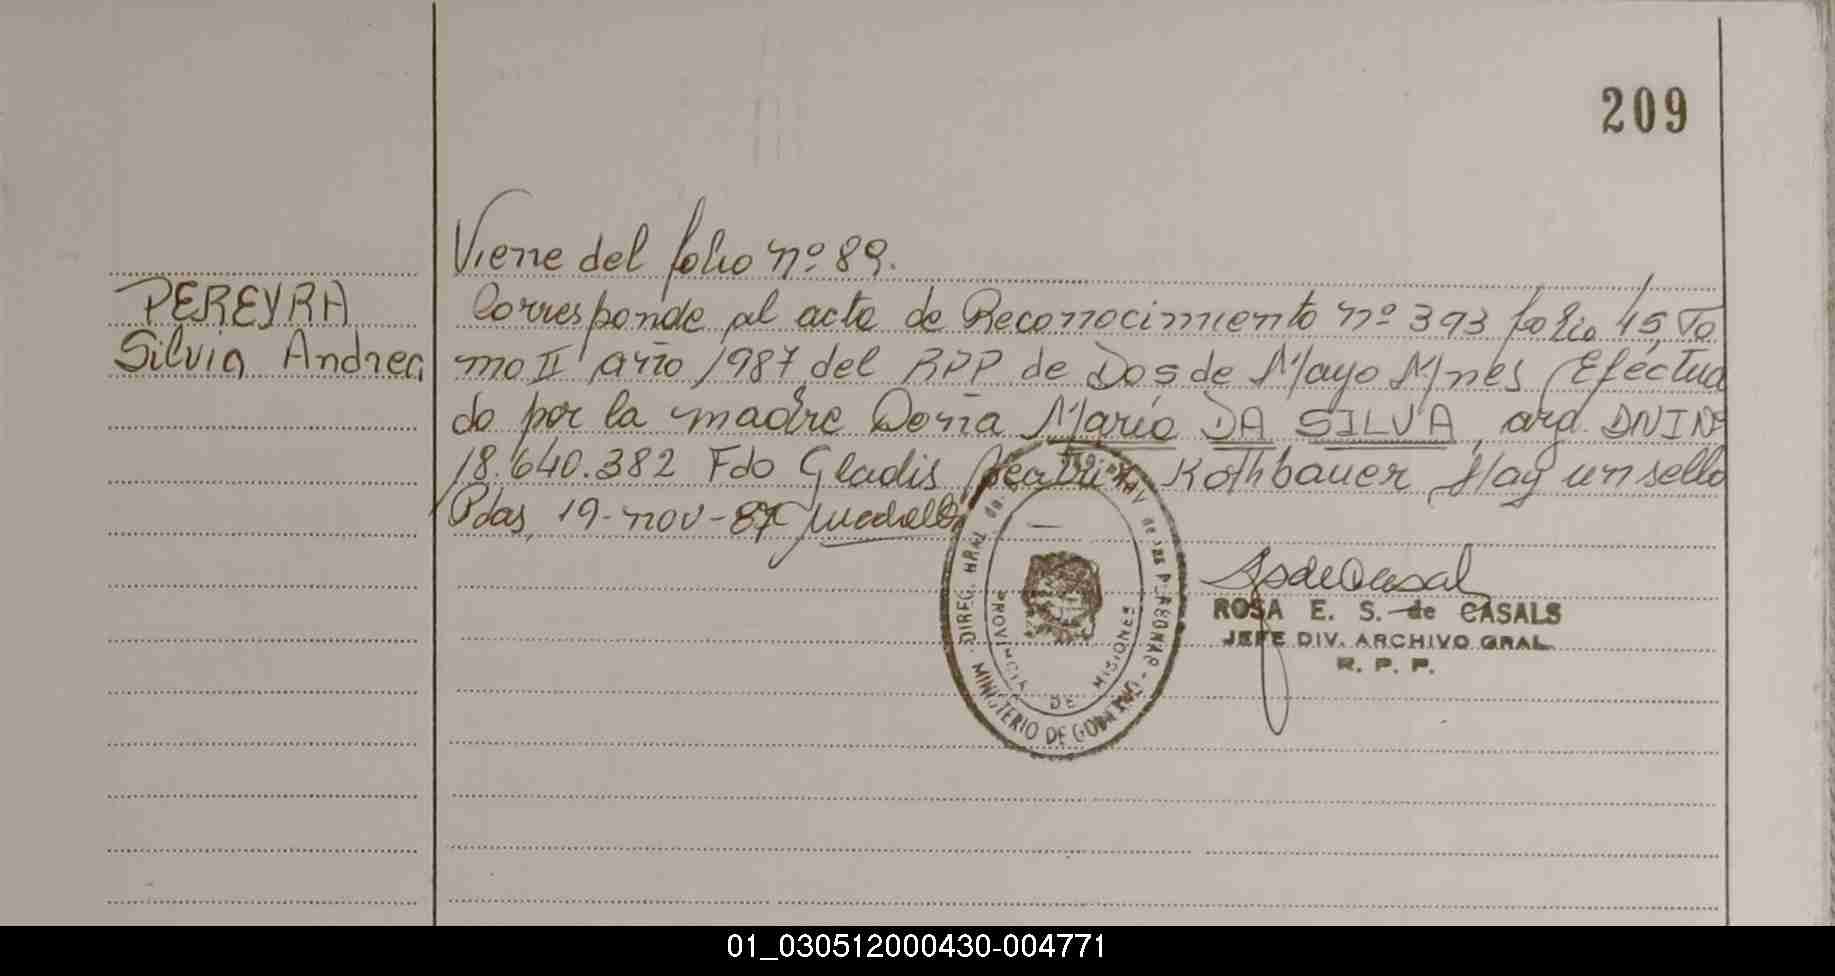 209
Viene del folio nº 89.
PEREYRA
Silvia Andrea
Corresponde al acta de Reconocimiento nº 393 folio 45, To
mo II año 1987 del RPP de Dos de Mayo Mnes Efectua
do por la madre Doña María DA SILVA, arg. DNI Nº
18.640.382 Fdo Gladis Beatriz Rothbauer Hay un sello
Pdas, 19-nov-87
DIREG. GRAL. de
de las PERSONAS
MINISTERIO DE GOBIERNO
PROVINCIA DE MISIONES
ROSA E. S. de CASALS
JEFE DIV. ARCHIVO GRAL.
R. P. P.
01_030512000430-004771